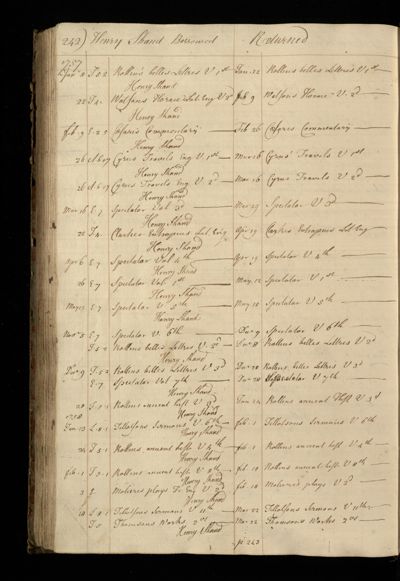 243) Henry Shand Borrowed Returned
1757
Jan 8 T 5 2 Rollins belles Lettres V 1st Jan. 22 Rollins belles Lettres V 1st
Henry Shand
22 T 4 Watsons Horace Lat Eng V 2d feb 9 Watsons Horace V. 2d
Henry Shand
feb 9 E 2 9 Cesars Commentary Feb 26 Cesars Commentary
Henry Shand
26 Cyrus Travels Eng V 1st Mar 16 Cyrus Travels V 1st
Henry Shand
26 Cyrus Travels Eng V. 2d Mar 16 Cyrus Travels V 2d
Henry Shand
Mar 16 E 7 Spectator Vol 3d Mar 29 Spectator V 3d
Henry Shand
T 4 Clarkes Eutropius Lat Eng Apr 19 Clarkes Eutropius Lat Eng
Henry Shand
Apr 6 E 7 Spectator Vol 4th Apr 19 Spectator V 4th
Henry Shand
26 E 7 Spectator Vol 1st May 12 Spectator V 1st
Henry Shand
May 12 E 7 Spectator V 5th May 18 Spectator V 5th
Henry Shand
Novr 3 E 7 Spectator V. 6th Decr 9 Spectator V 6th
T 5 2 Rollins belles Lettres V. 2d Rollins belles Lettres V 2d
Henry Shand
Decr 9 T 5 2 Rollins belles Lettres V 3d Decr 20 Rollins belles Lettres V 3d
E 7 Spectator Vol 7th Decr 20 Spectator V 7th
Henry Shand
20 Rollins ancient hist. V 3d Jan 24 Rollins ancient Hist V 3d
1758 Henry Shand
Jan 13 L 8 1 Tillotsons Sermons V 6th feb 1 Tillotsons Sermons V 6th
Henry Shand
Rollins ancient hist. V 4th feb 1 Rollins ancient hist V 4th
Henry Shand
feb 1 Rollins ancient hist. V 8th feb 10 Rollins ancient hist. V 8th
Henry Shand
3 Molieres plays Fr Eng V 2d feb 10 Molieres plays V 2d
Henry Shand
10 L 8 1 Tillotsons Sermons V 11th Mar 22 Tillotsons Sermons V 11th
Thomsons Works 2 vol Mar 22 Thomsons Works 2 vol
Henry Shand
p 243